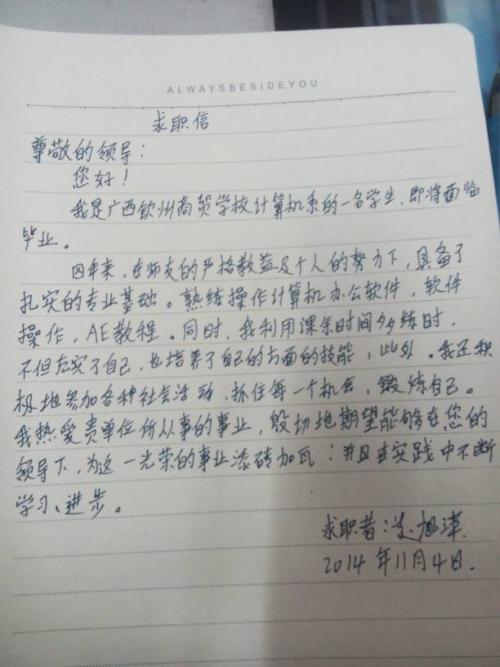 ALWAYSBESIDEYOU
求职信
尊敬的领导：
您好！
我是广西钦州商贸学校计算机系的一名学生，即将面临
毕业。
四年来，在师友的严格教益及个人的努力下，具备了
扎实的专业基础。熟练操作计算机办公软件，软件
操作，AE教程。同时，我利用课余时间多练时，
不但充实了自己，也培养了自己的方面的技能，此外。我还积
极地参加各种社会活动，抓住每一个机会，锻炼自己。
我热爱贵单位所从事的事业，殷切地期望能够在您的
领导下，为这一光荣的事业添砖加瓦；并且在实践中不断
学习、进步。
求职者：旭
2014年11月4日.